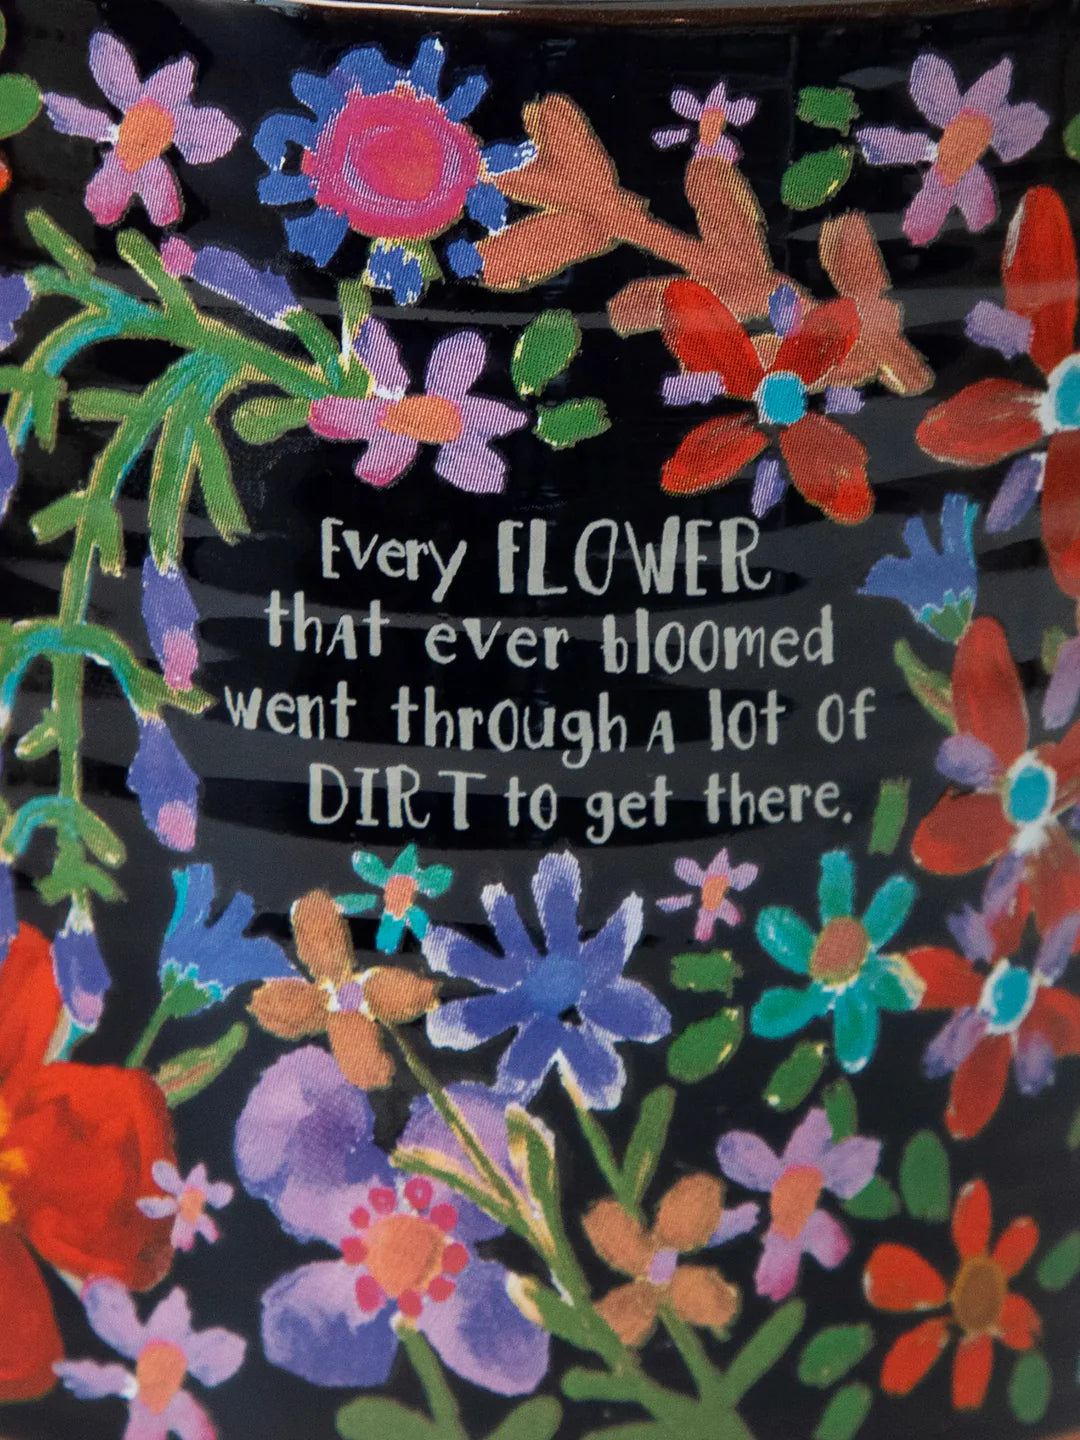 Every FLOWER
that ever bloomed
went through a lot of
DIRT to get there.